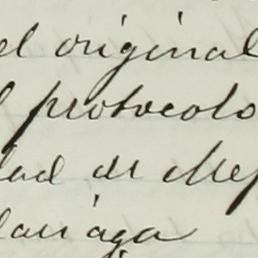 el original
l protocolo
dad de Mej
larriaga